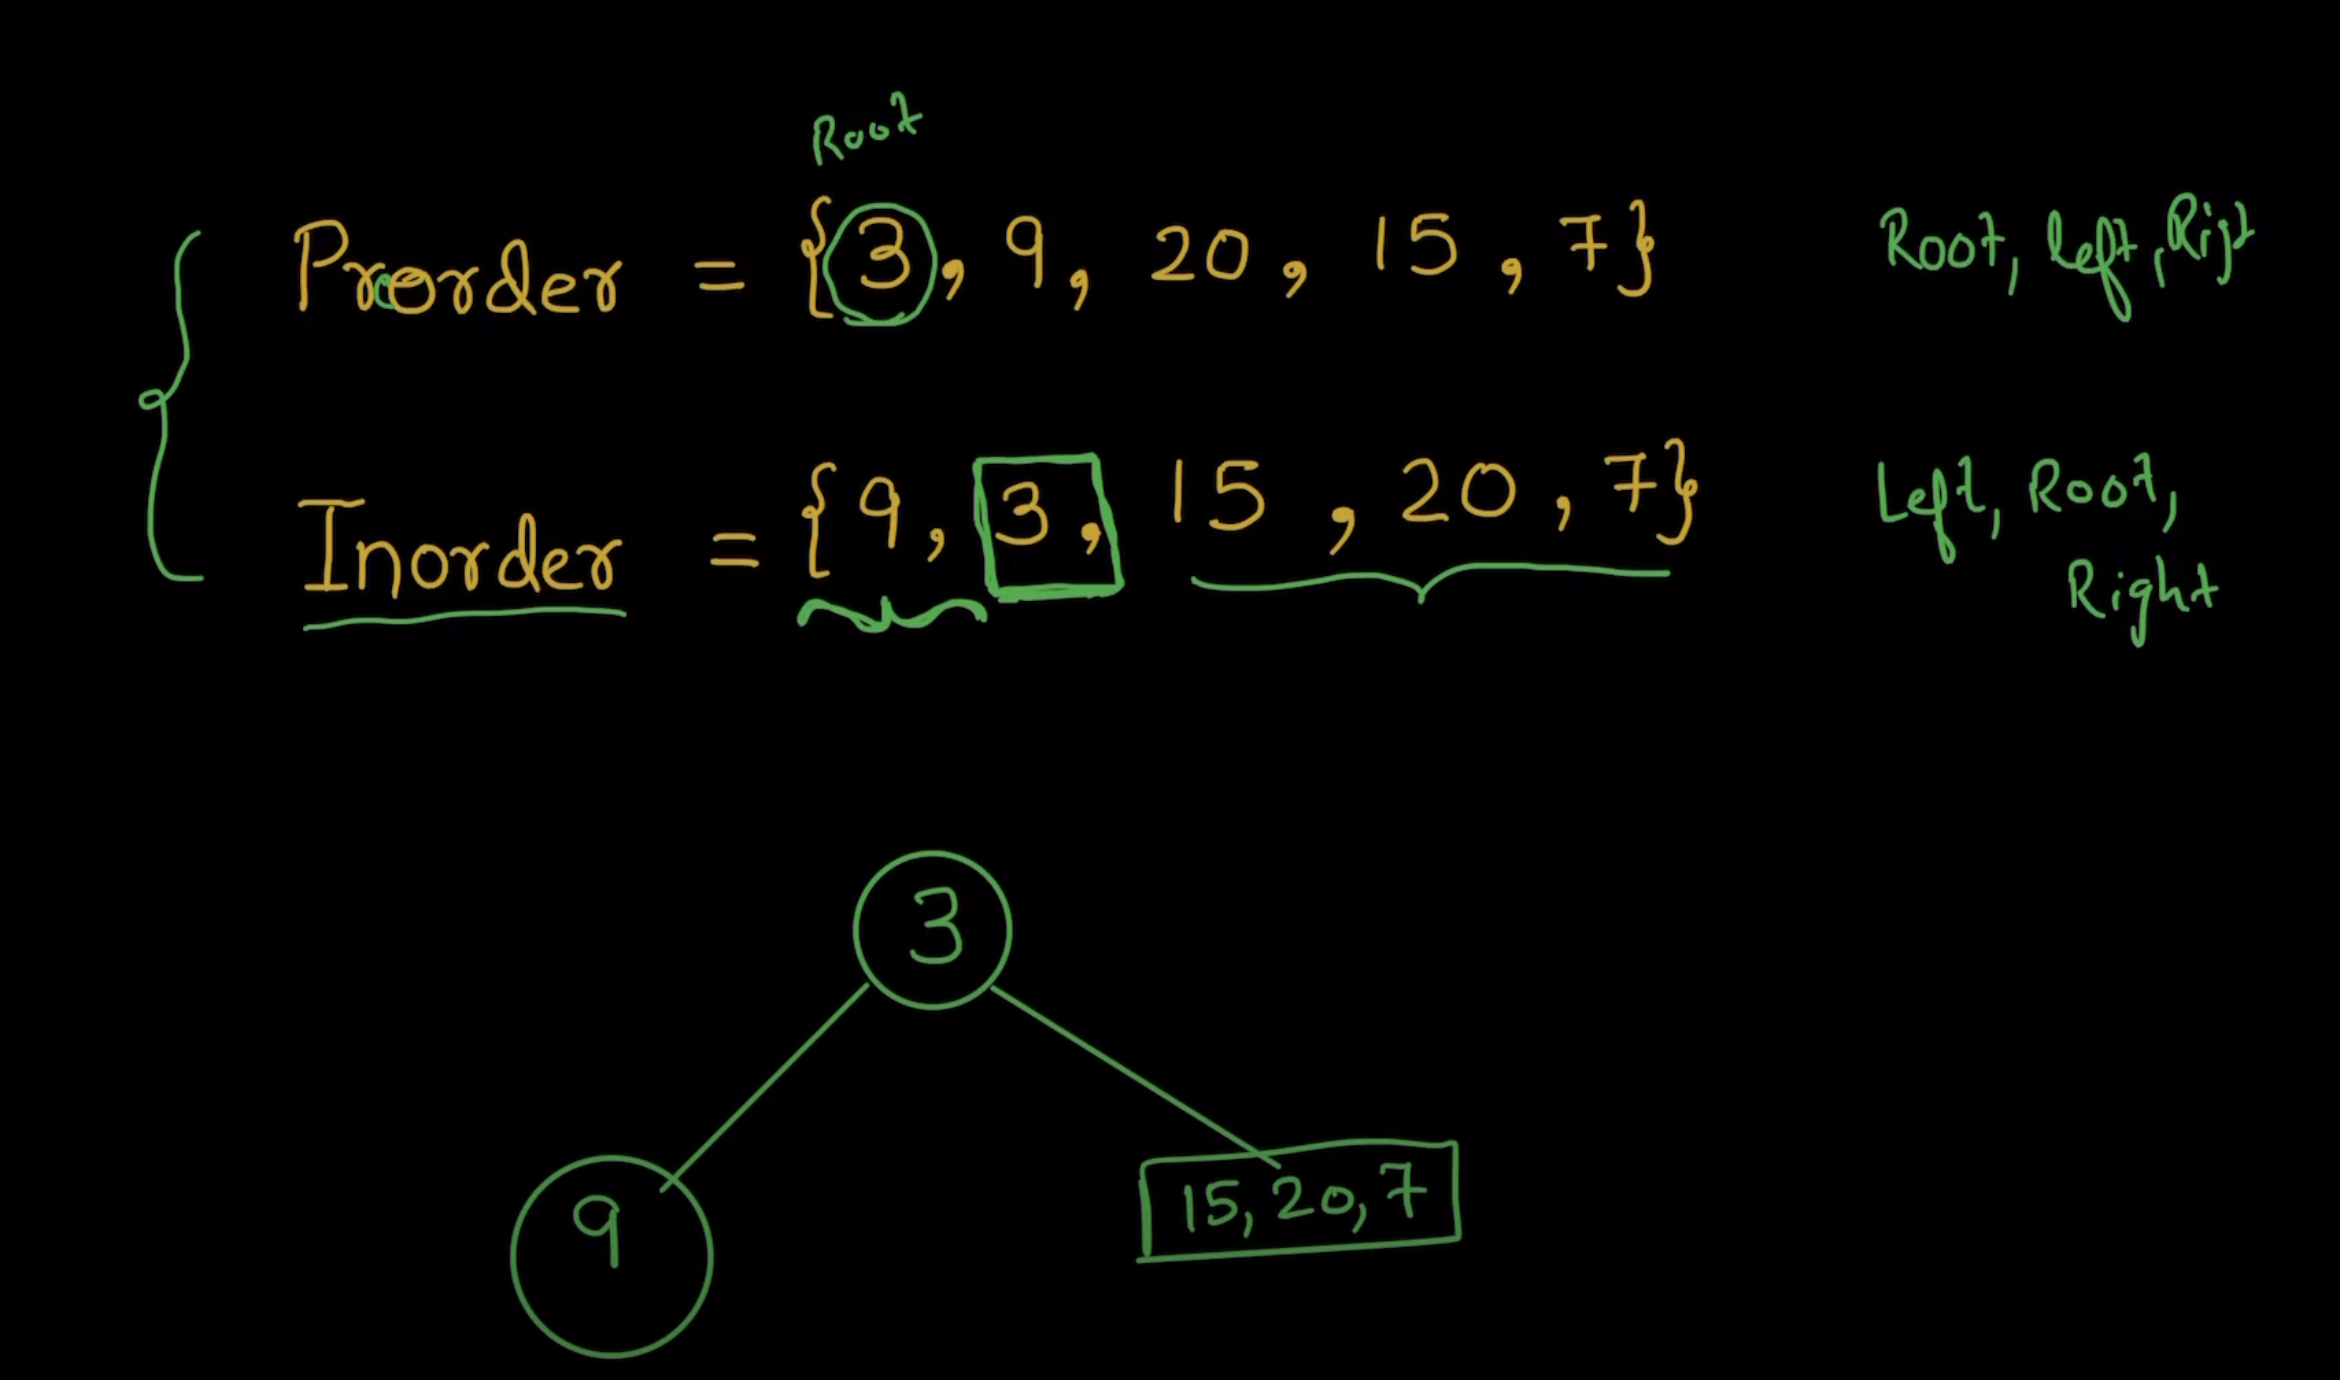 Root
Preorder = {3, 9, 20, 15, 7} Root, left, Right
Inorder = {9, 3, 15, 20, 7} Left, Root,
Right
3
9
15, 20, 7